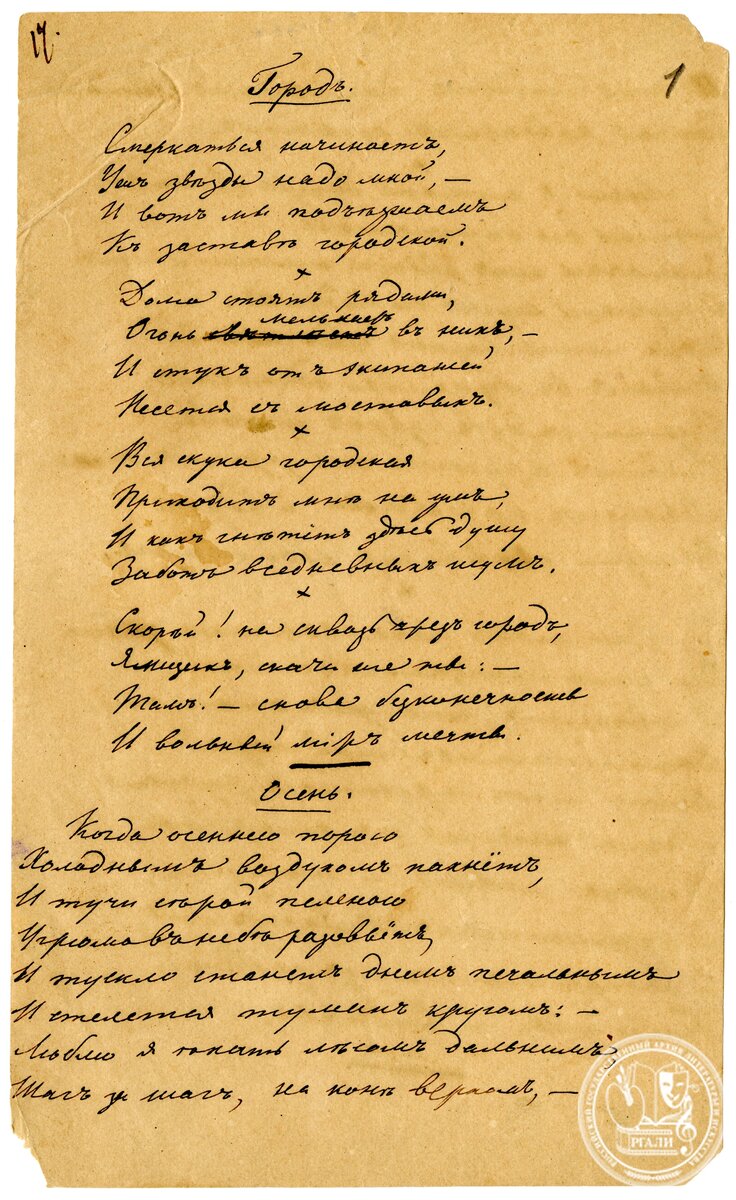 17.
1
Городъ.
Смеркаться начинаетъ,
Ужъ звѣзды надо мной, —
И вотъ мы подъѣзжаемъ
Къ заставѣ городской.
×
Дома стоятъ рядами,
мелькаетъ
Огонь въ нихъ, —
И стукъ отъ экипажей
Несется съ мостовыхъ.
×
Вся скука городская
Приходитъ мнѣ на умъ,
И какъ гнѣтётъ здѣсь душу
Заботъ вседневныхъ шумъ.
×
Скорѣй! на сквозь чрезъ городъ,
Ямщикъ, скачи же ты: —
Тамъ! — снова безконечность
И вольный міръ мечты.
Осень.
Когда осеннею порою
Холоднымъ воздухомъ пахнётъ,
И тучи сѣрой пеленою
Угрюмо въ небѣ разовьётъ,
И тускло станетъ днемъ печальнымъ
И стелется туманъ кругомъ: —
Люблю я ѣхать лѣсомъ дальнимъ
Шагъ за шагъ, на конѣ верномъ, —
РОССИЙСКИЙ ГОСУДАРСТВЕННЫЙ АРХИВ ЛИТЕРАТУРЫ И ИСКУССТВА
РГАЛИ